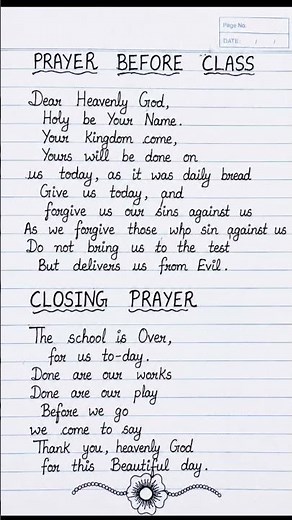 Page No.
DATE: / /
PRAYER BEFORE CLASS
Dear Heavenly God,
Holy be Your Name.
Your Kingdom come,
Yours will be done on
us today, as it was daily bread
Give us today, and
forgive us our sins against us
As we forgive those who sin against us
Do not bring us to the test
But delivers us from Evil.
CLOSING PRAYER
The school is Over,
for us to-day.
Done are our works
Done are our play
Before we go
we come to say
Thank you, heavenly God
for this Beautiful day.